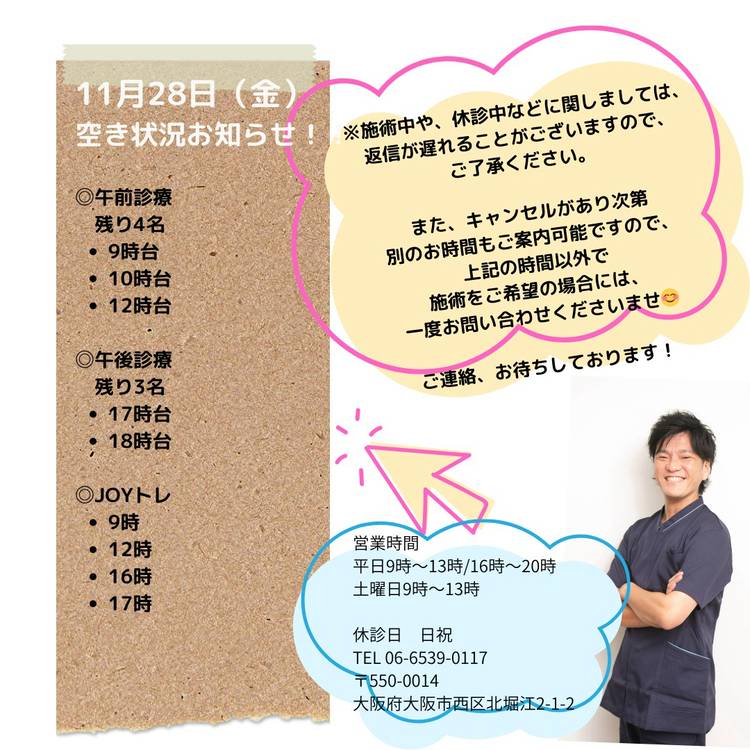 11月28日（金）
空き状況お知らせ！
◎午前診療
残り4名
• 9時台
• 10時台
• 12時台
◎午後診療
残り3名
• 17時台
• 18時台
◎JOYトレ
• 9時
• 12時
• 16時
• 17時
※施術中や、休診中などに関しましては、
返信が遅れることがございますので、
ご了承ください。
また、キャンセルがあり次第
別のお時間もご案内可能ですので、
上記の時間以外で
施術をご希望の場合には、
一度お問い合わせくださいませ😊
ご連絡、お待ちしております！
営業時間
平日9時～13時/16時～20時
土曜日9時～13時
休診日　日祝
TEL 06-6539-0117
〒550-0014
大阪府大阪市西区北堀江2-1-2